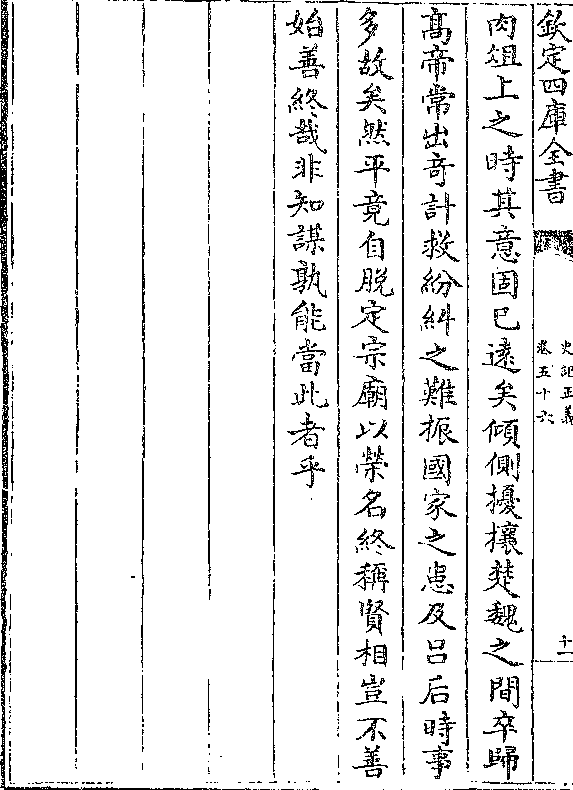 欽定四庫全書
史記正義
卷五十六
十一
肉俎上之時其意固已遠矣傾側擾攘楚魏之間卒歸
高帝常出奇計救紛糾之難振國家之患及吕后時事
多故矣然平竟自脱定宗廟以榮名終稱賢相豈不善
始善終哉非知謀孰能當此者乎